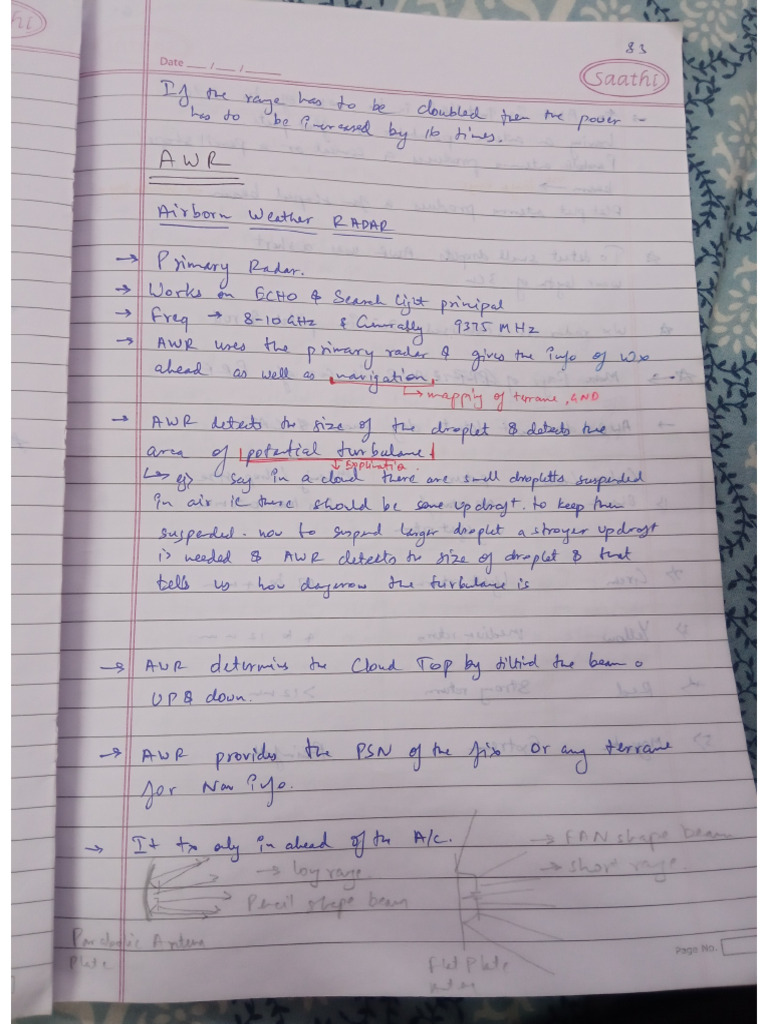 83
Date __ / __ / ____
Saathi
If the range has to be doubled then the power
has to be increased by 16 times.
AWR
Airborn Weather RADAR
→ Primary Radar.
→ Works on ECHO & Search light prinipal
→ Freq → 8-10 GHz & Generally 9375 MHz
→ AWR uses the primary radar & gives the info of Wx
ahead as well as navigation
↳ mapping of terrane, GND
→ AWR detects the size of the droplet & detects the
area of potential turbulane
↓
↳ eg) say in a cloud there are small dropletts suspended
in air ie there should be some updraft. to keep them
suspended. now to suspend larger droplet a stroger updraft
is needed & AWR detects the size of droplet & that
tells us how dagerow the turbulane is
→ AWR determins the Cloud Top by tiltid the beam
UP & down.
→ AWR provides the PSN of the fix or any terrane
for Nav info.
→ It tx only in ahead of the A/c.
→ FAN shape beam
→ log rage.
→ short rage.
Pencil shape beam
Parabolic Antena
Plate
Flat Plate
Page No.